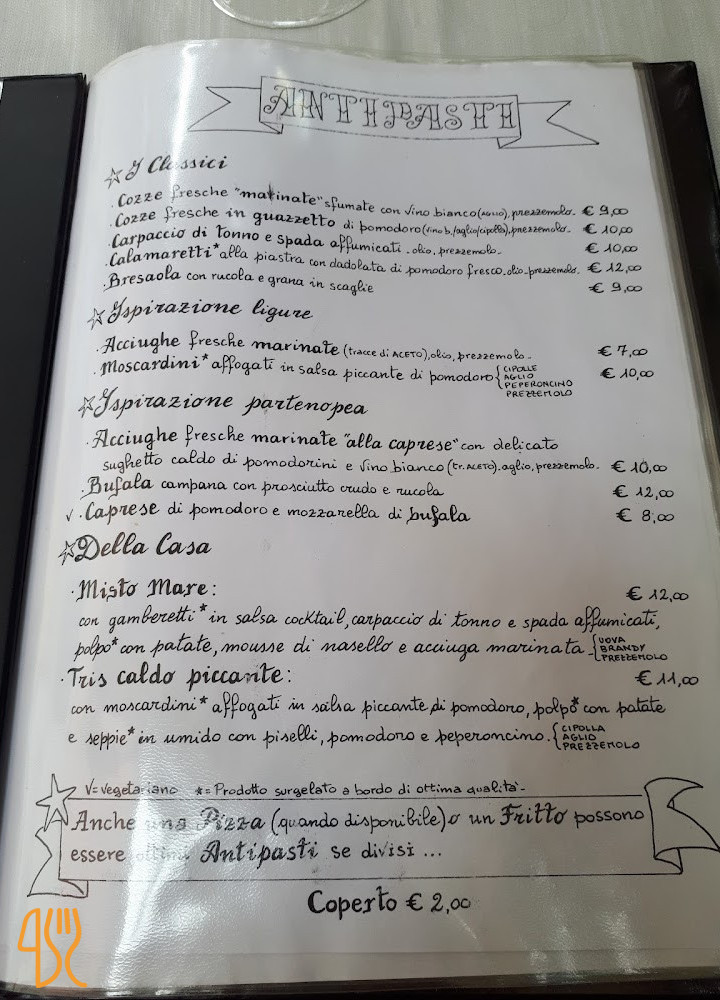 ANTIPASTI
I Classici
. Cozze fresche "marinate" sfumate con vino bianco (AGLIO), prezzemolo. € 9,00
. Cozze fresche in guazzetto di pomodoro (vino b./aglio/cipolla), prezzemolo. € 10,00
. Carpaccio di tonno e spada affumicati . olio, prezzemolo. € 10,00
. Calamaretti* alla piastra con dadolata di pomodoro fresco.olio.prezzemolo. € 12,00
. Bresaola con rucola e grana in scaglie € 9,00
Ispirazione ligure
. Acciughe fresche marinate (tracce di ACETO), olio, prezzemolo. € 7,00
. Moscardini* affogati in salsa piccante di pomodoro { CIPOLLE € 10,00
AGLIO
PEPERONCINO
PREZZEMOLO
Ispirazione partenopea
. Acciughe fresche marinate "alla caprese" con delicato
sughetto caldo di pomodorini e vino bianco (tr. ACETO).aglio, prezzemolo. € 10,00
. Bufala campana con prosciutto crudo e rucola € 12,00
v . Caprese di pomodoro e mozzarella di bufala € 8,00
Della Casa
. Misto Mare: € 12,00
con gamberetti* in salsa cocktail, carpaccio di tonno e spada affumicati,
polpo* con patate, mousse di nasello e acciuga marinata { UOVA
BRANDY
PREZZEMOLO
. Tris caldo piccante: € 11,00
con moscardini* affogati in salsa piccante di pomodoro, polpo* con patate
e seppie* in umido con piselli, pomodoro e peperoncino. { CIPOLLA
AGLIO
PREZZEMOLO
V= vegetariano *= Prodotto surgelato a bordo di ottima qualità.
Anche una Pizza (quando disponibile) o un Fritto possono
essere ottimi Antipasti se divisi ...
Coperto € 2,00